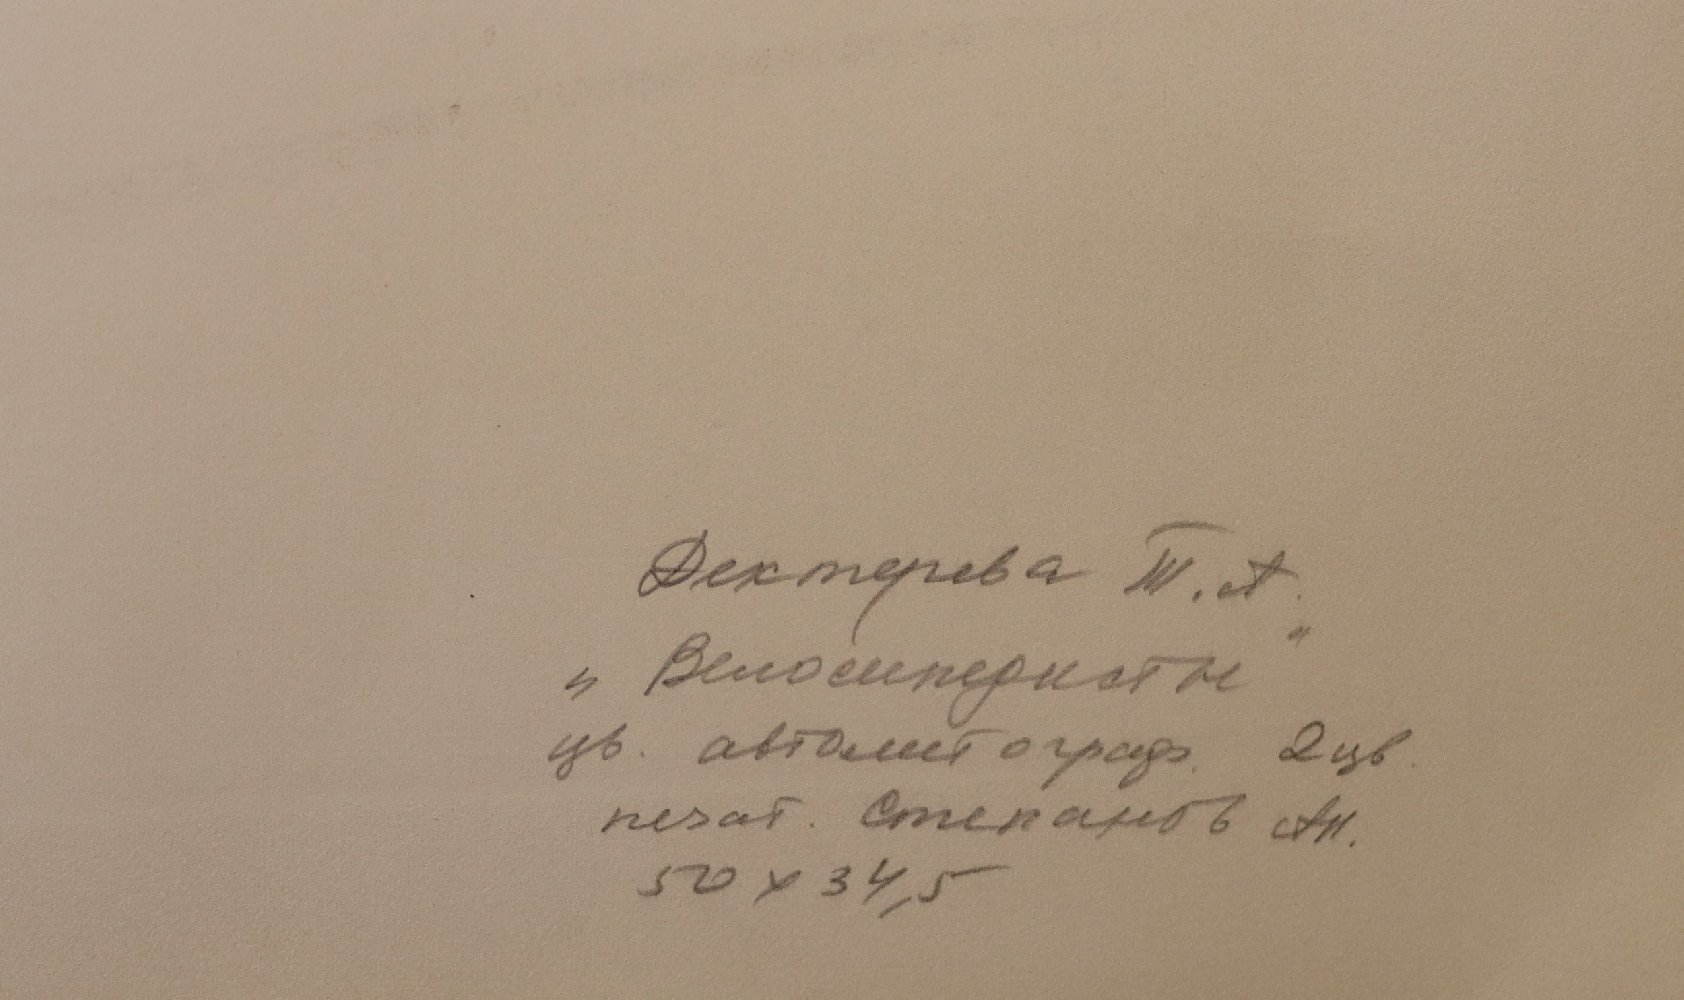 Дехтерева Т. А.
„Велосипедисты"
цв. автолитограф. 2 цв.
печат. Степанов Ан.
50 х 34,5